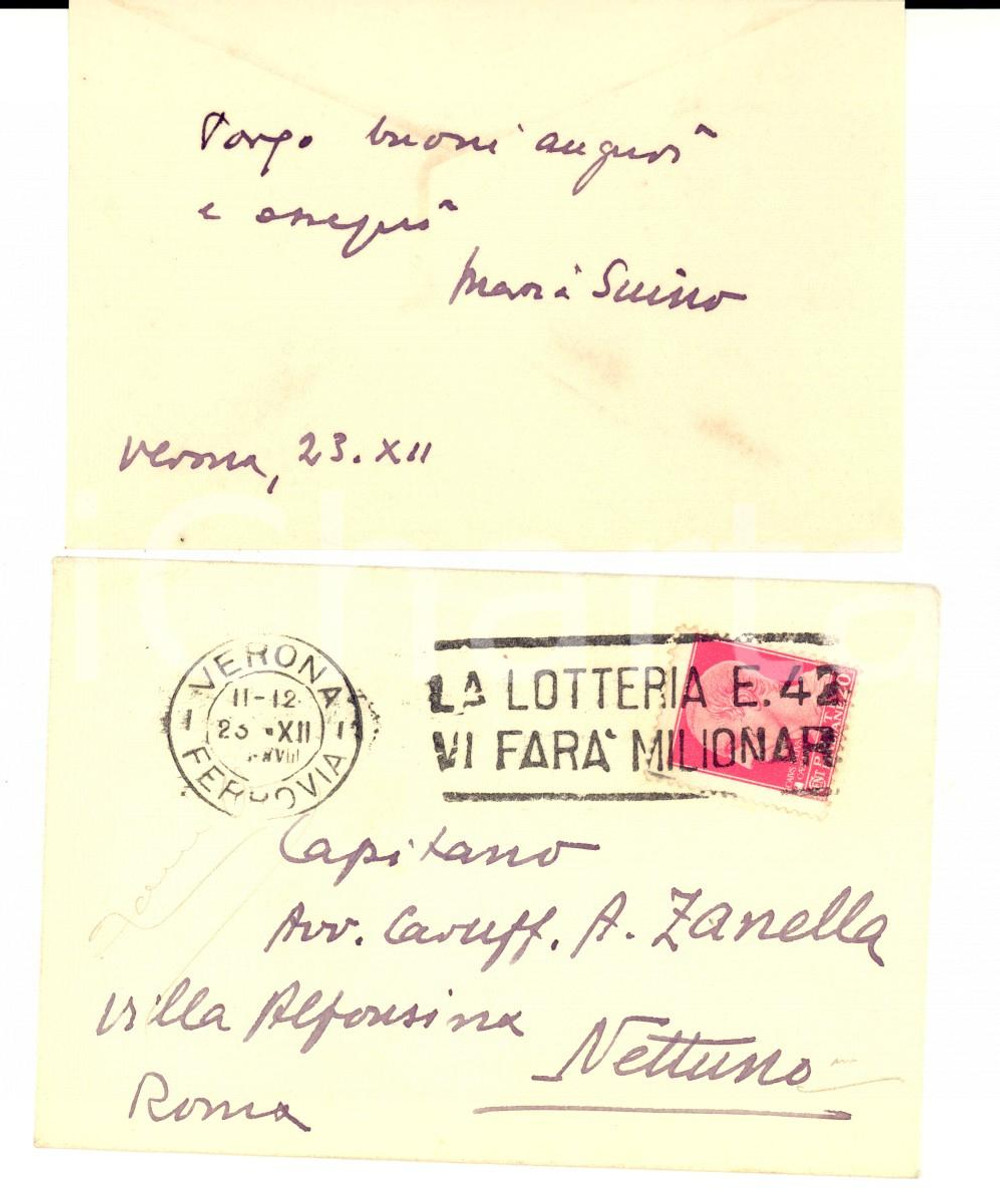 Porgo buoni auguri
e ossequi
Maria Suino
Verona, 23.XII
iCharta
VERONA
11-12
23 XII
XVIII
FERROVIA
LA LOTTERIA E. 42
VI FARA' MILIONARI
Capitano
Avv. Cav. Uff. A. Zanella
Villa Alfonsina
Nettuno
Roma